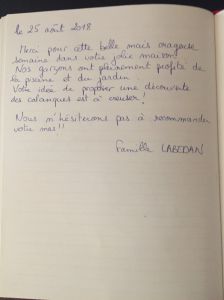 le 25 août 2018
Merci pour cette belle mais orageuse
semaine dans votre jolie maison.
Nos garçons ont pleinement profité de
la piscine et du jardin.
Votre idée de proposer une découverte
des calanques est à creuser !
Nous n'hésiterons pas à recommander
votre mas !!
Famille LABEDAN